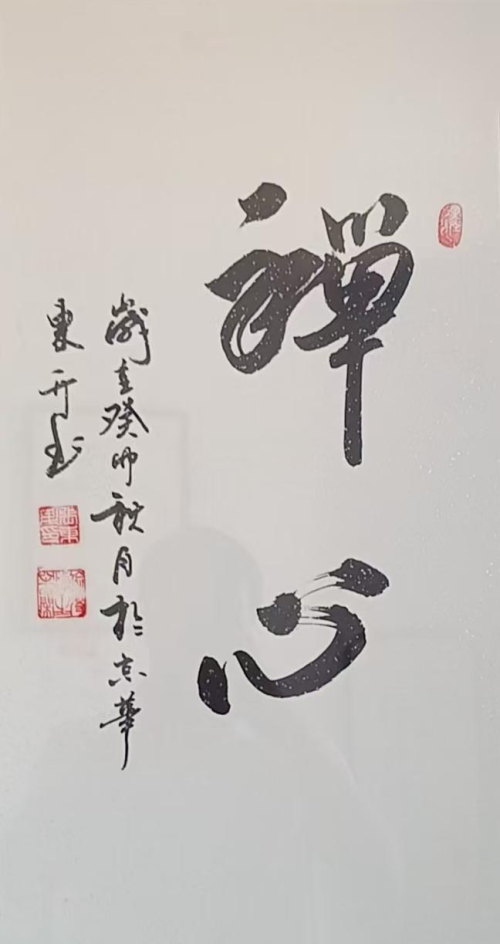 禪心
歲在癸卯秋月於京華
東升书